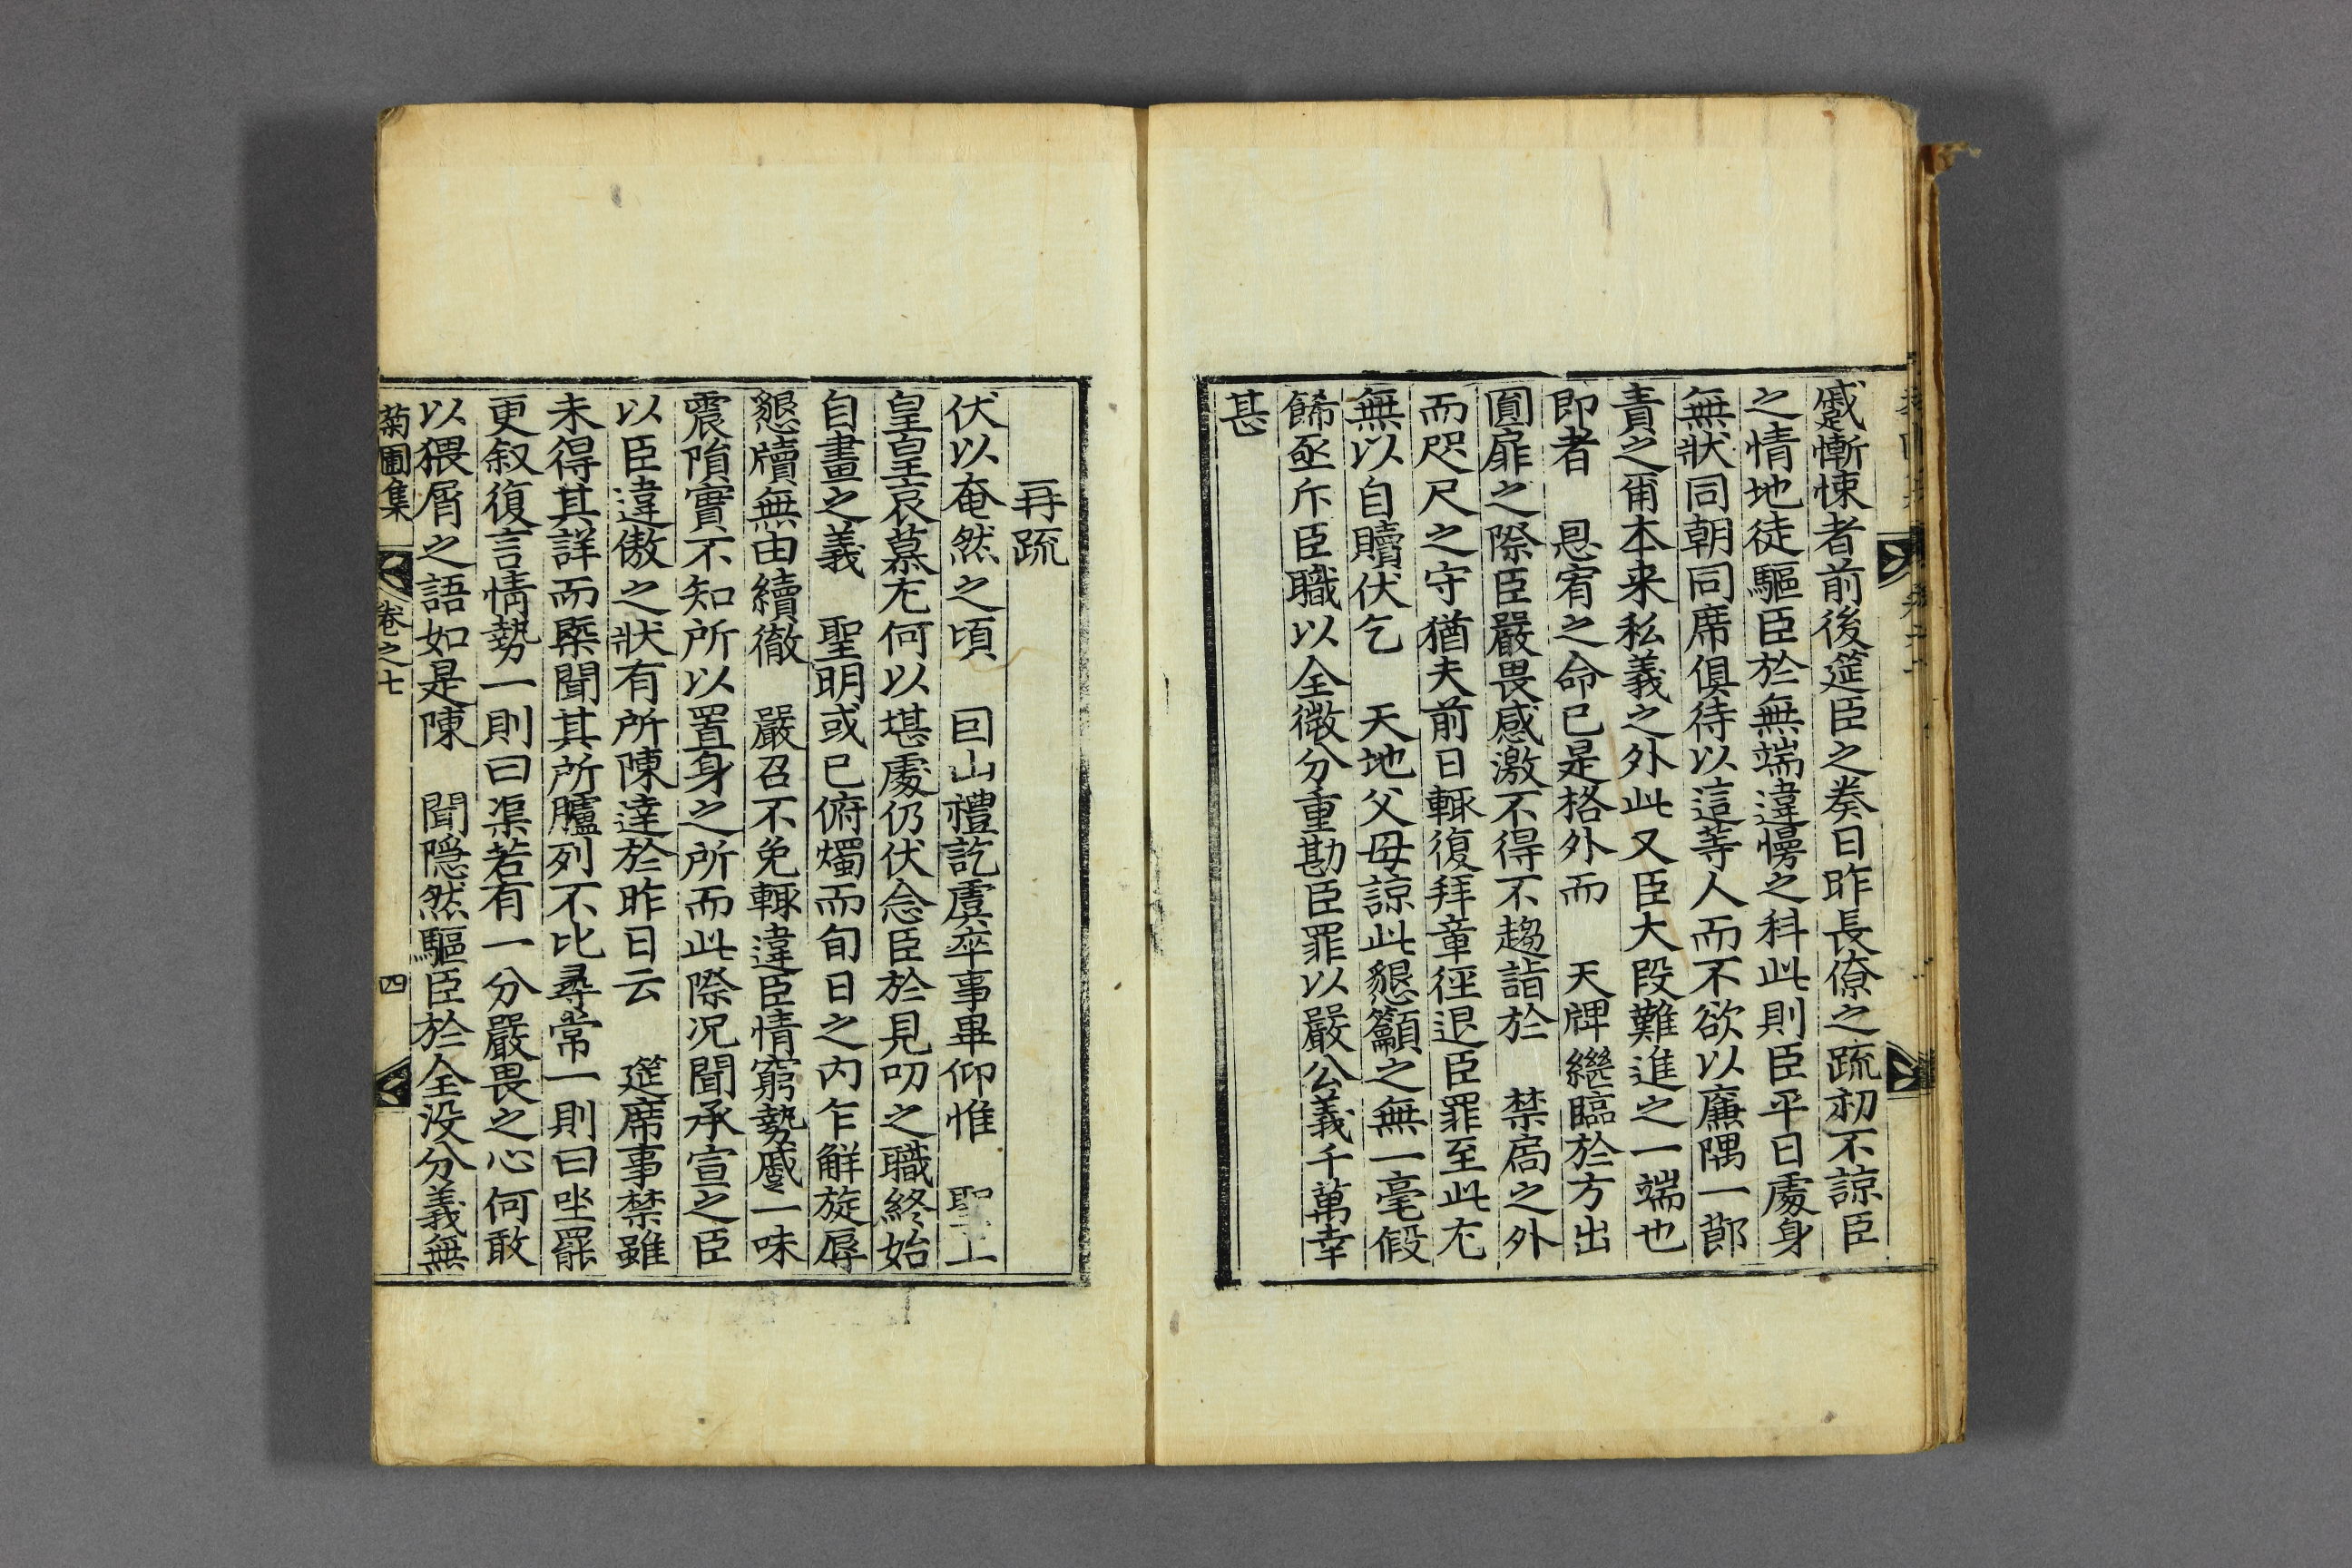 蹙慚悚者前後筵臣之奏日昨長僚之疏初不諒臣
之情地徒驅臣於無端違慢之科此則臣平日處身
無狀同朝同席俱待以這等人而不欲以廉隅一節
責之甭本来私義之外此又臣大段難進之一端也
即者 恩宥之命已是格外而 天牌繼臨於方出
圓扉之際臣嚴畏感激不得不趨詣於 禁扃之外
而咫尺之守猶夫前日輒復拜章徑退臣罪至此尤
無以自贖伏乞 天地父母諒此懇籲之無一毫假
餙亟斥臣職以全微分重勘臣罪以嚴公義千萬幸
甚
再疏
伏以奄然之頃 囙山禮訖虞卒事畢仰惟 聖上
皇皇哀慕尤何以堪處仍伏念臣於見叨之職終始
自畫之義 聖明或已俯燭而旬日之内乍觧旋辱
懇牘無由續徹 嚴召不免輒違臣情窮勢蹙一味
震隕實不知所以置身之所而此際况聞承宣之臣
以臣違傲之狀有所陳達於昨日云 筵席事禁雖
未得其詳而槩聞其所臚列不比尋常一則曰坐罷
更叙復言情勢一則曰渠若有一分嚴畏之心何敢
以猥屑之語如是陳 聞隐然驅臣於全没分義無
菊圃集 卷之七 四